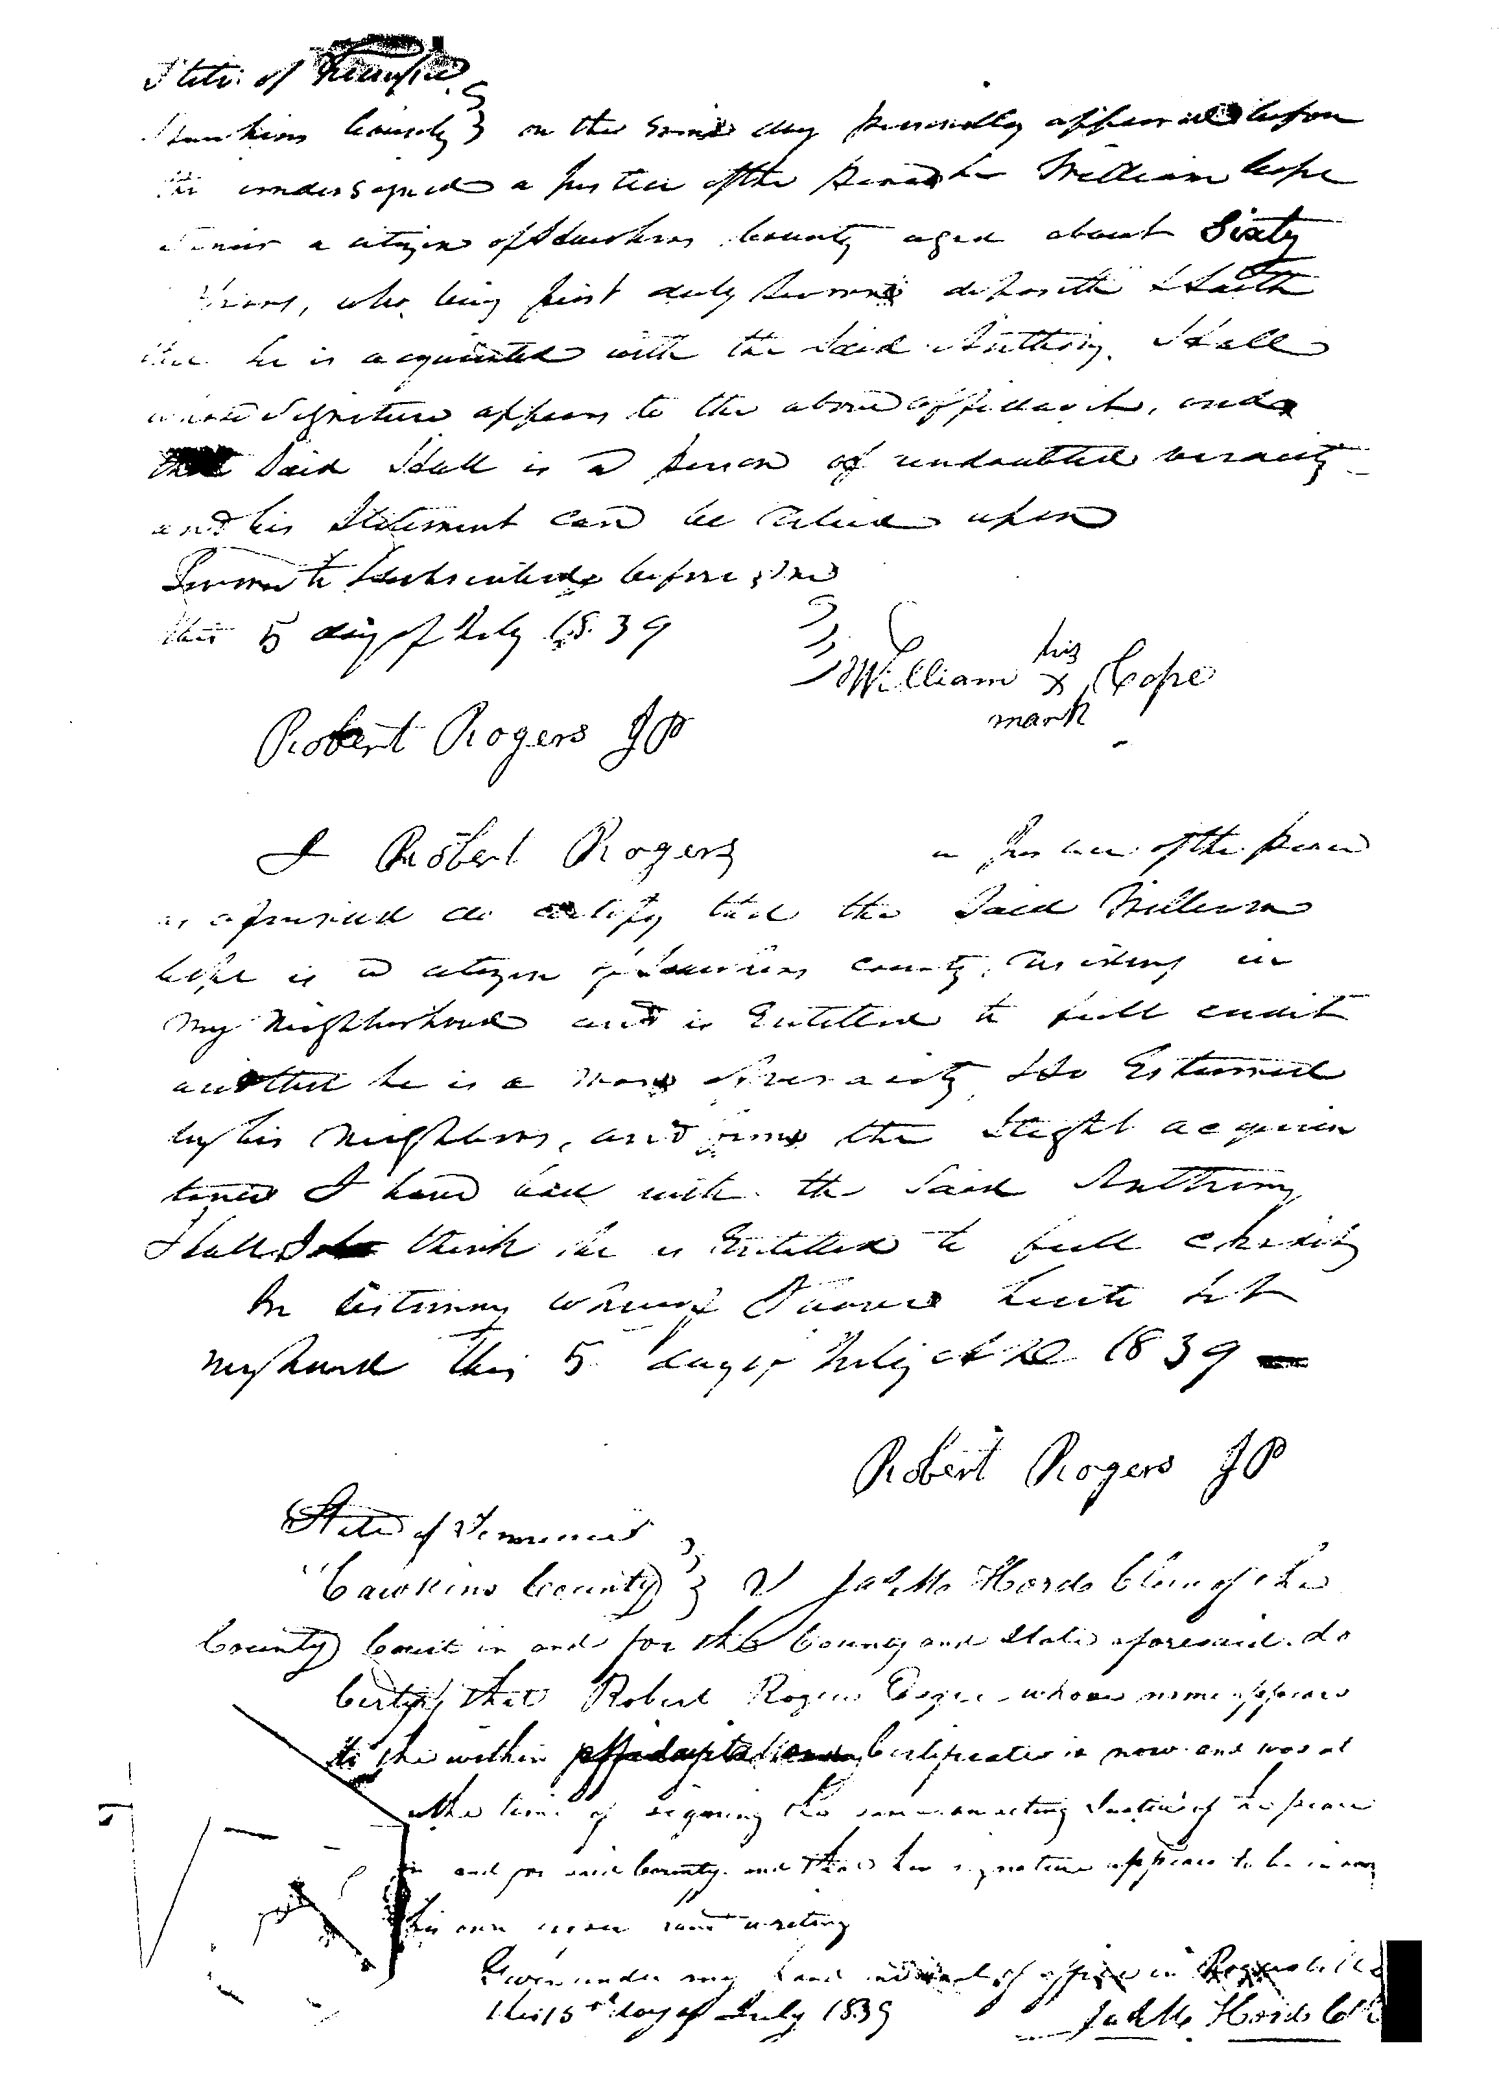 State of Tennessee
Hawkins County } on this same day personally appeared before
the undersigned a Justice of the Peace William Cope
Senior a citizen of Hawkins County aged about Sixty
years, who being first duly sworn deposeth & Saith
that he is acquainted with the Said Anthony Hall
whose Signature appears to the above affidavit, and
that Said Hall is a person of undoubted veracity
and his Statement can be relied upon
Sworn to & Subscribed before me
this 5 day of July 1839
his
William X Cope
mark
Robert Rogers JP
I Robert Rogers a Justice of the peace
as aforesaid do certify that the Said William
Cope is a citizen of Hawkins county, residing in
my Neighborhood and is Entitled to full credit
and that he is a man of veracity & So Esteemed
by his Neighbors, and from the Slight acquain
tance I have had with the Said Anthony
Hall I think he is Entitled to full credit
In testimony whereof I have hereto Set
my hand this 5 day of July A D 1839
Robert Rogers JP
State of Tennessee
Hawkins County } I Jas. M. Hord Clerk of the
County Court in and for the County and State aforesaid do
Certify that Robert Rogers Esqr. whose name appears
to the within Certificate is now and was at
the time of signing the same an acting Justice of the peace
in and for said County and that his signature appears to be in
his own hand writing
Given under my hand and seal of office in Rogersville
this 15th day of July 1839 Jas. M. Hord Clk